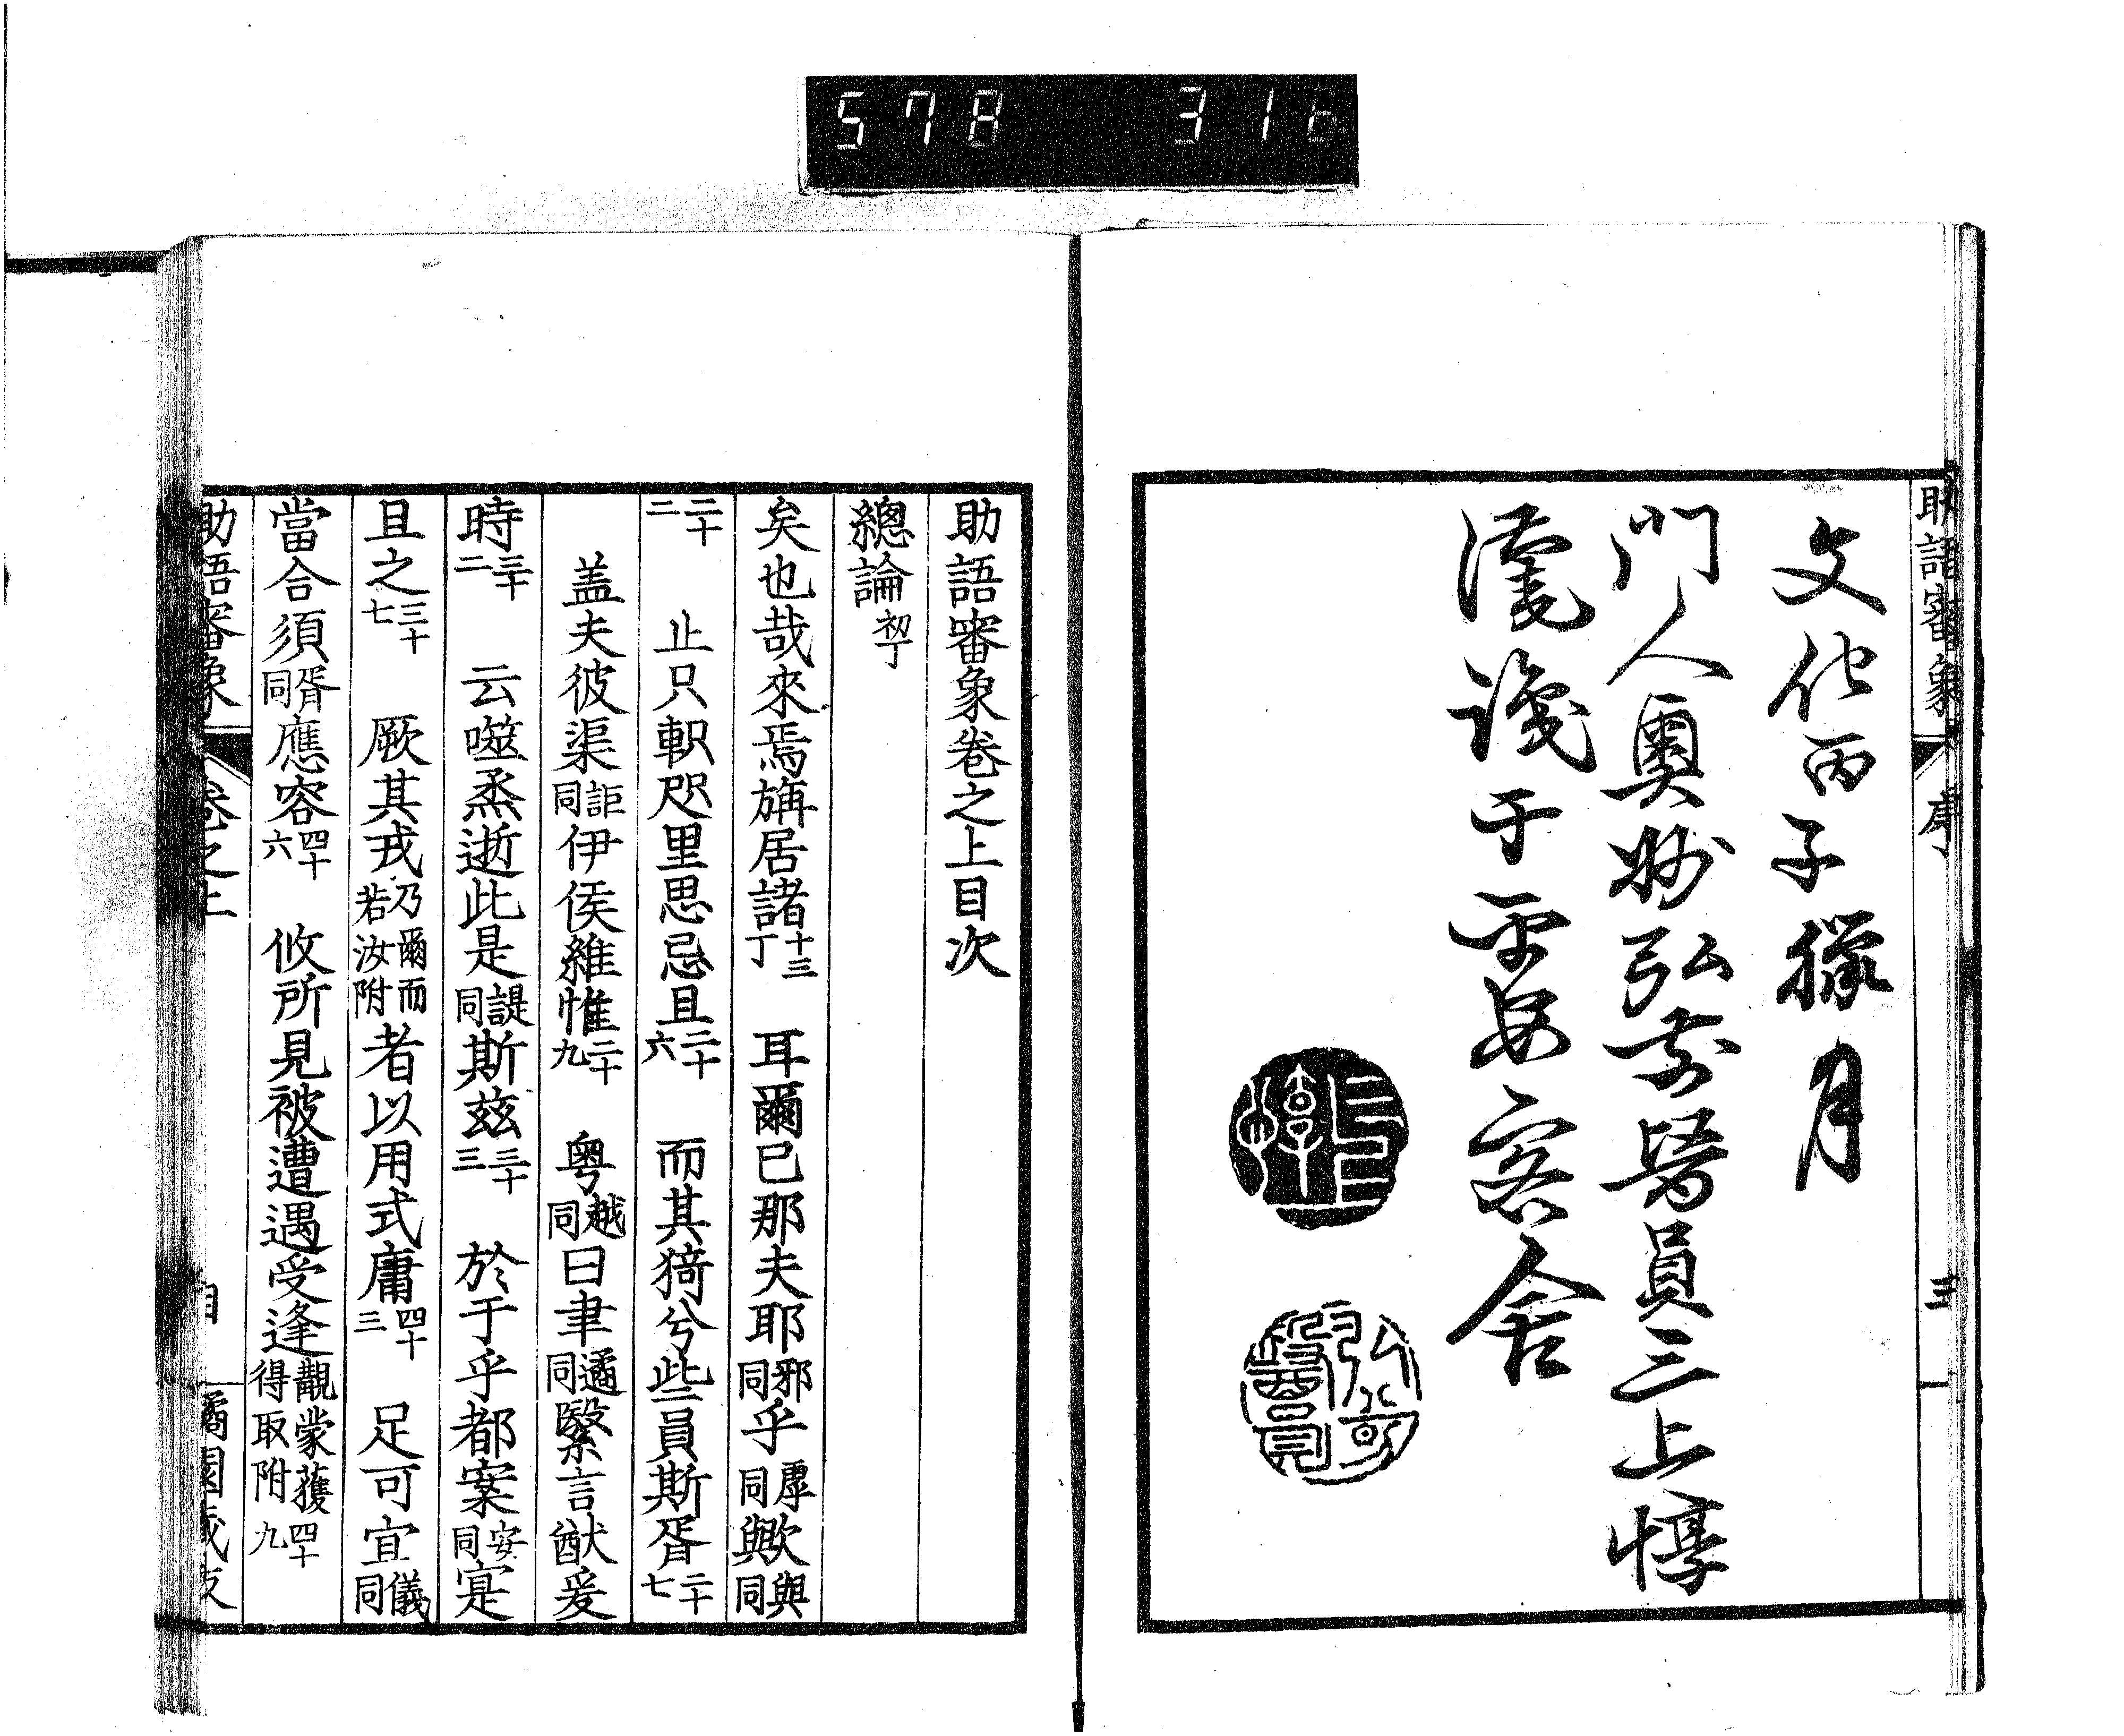 578 31
助語審象 序 三
文化丙子獵月
門人奥州弘前醫員三上惇
漫識于平安客舍
弘前醫員
助語審象卷之上目次
總論 初丁
矣也哉來焉旃居諸 十三丁 耳爾已那夫耶 邪同 乎 虖同 歟 與同
二十二 止只軹咫里思忌且 二十六 而其猗兮些員斯胥 二十七
盖夫彼渠 詎同 伊侯維惟 二十九 粤 越同 曰聿 遹同 繄言猷爰
時 三十二 云噬烝逝此是 諟同 斯兹 三十三 於于乎都案 安同 寔
且之 三十七 厥其戎 乃爾而若汝附 者以用式庸 四十三 足可宜 儀同
當合須 胥同 應容 四十六 攸所見被遭遇受逢 覯蒙獲得取附 四十九
助語審象 卷之上 目 一